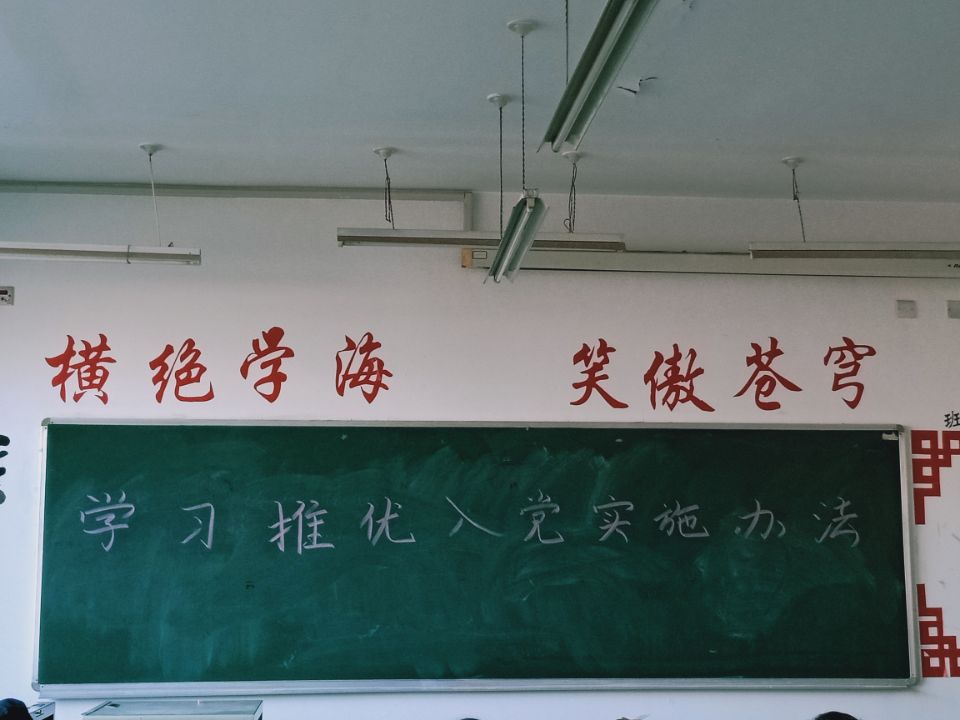 横绝学海 笑傲苍穹
班
学习推优入党实施办法